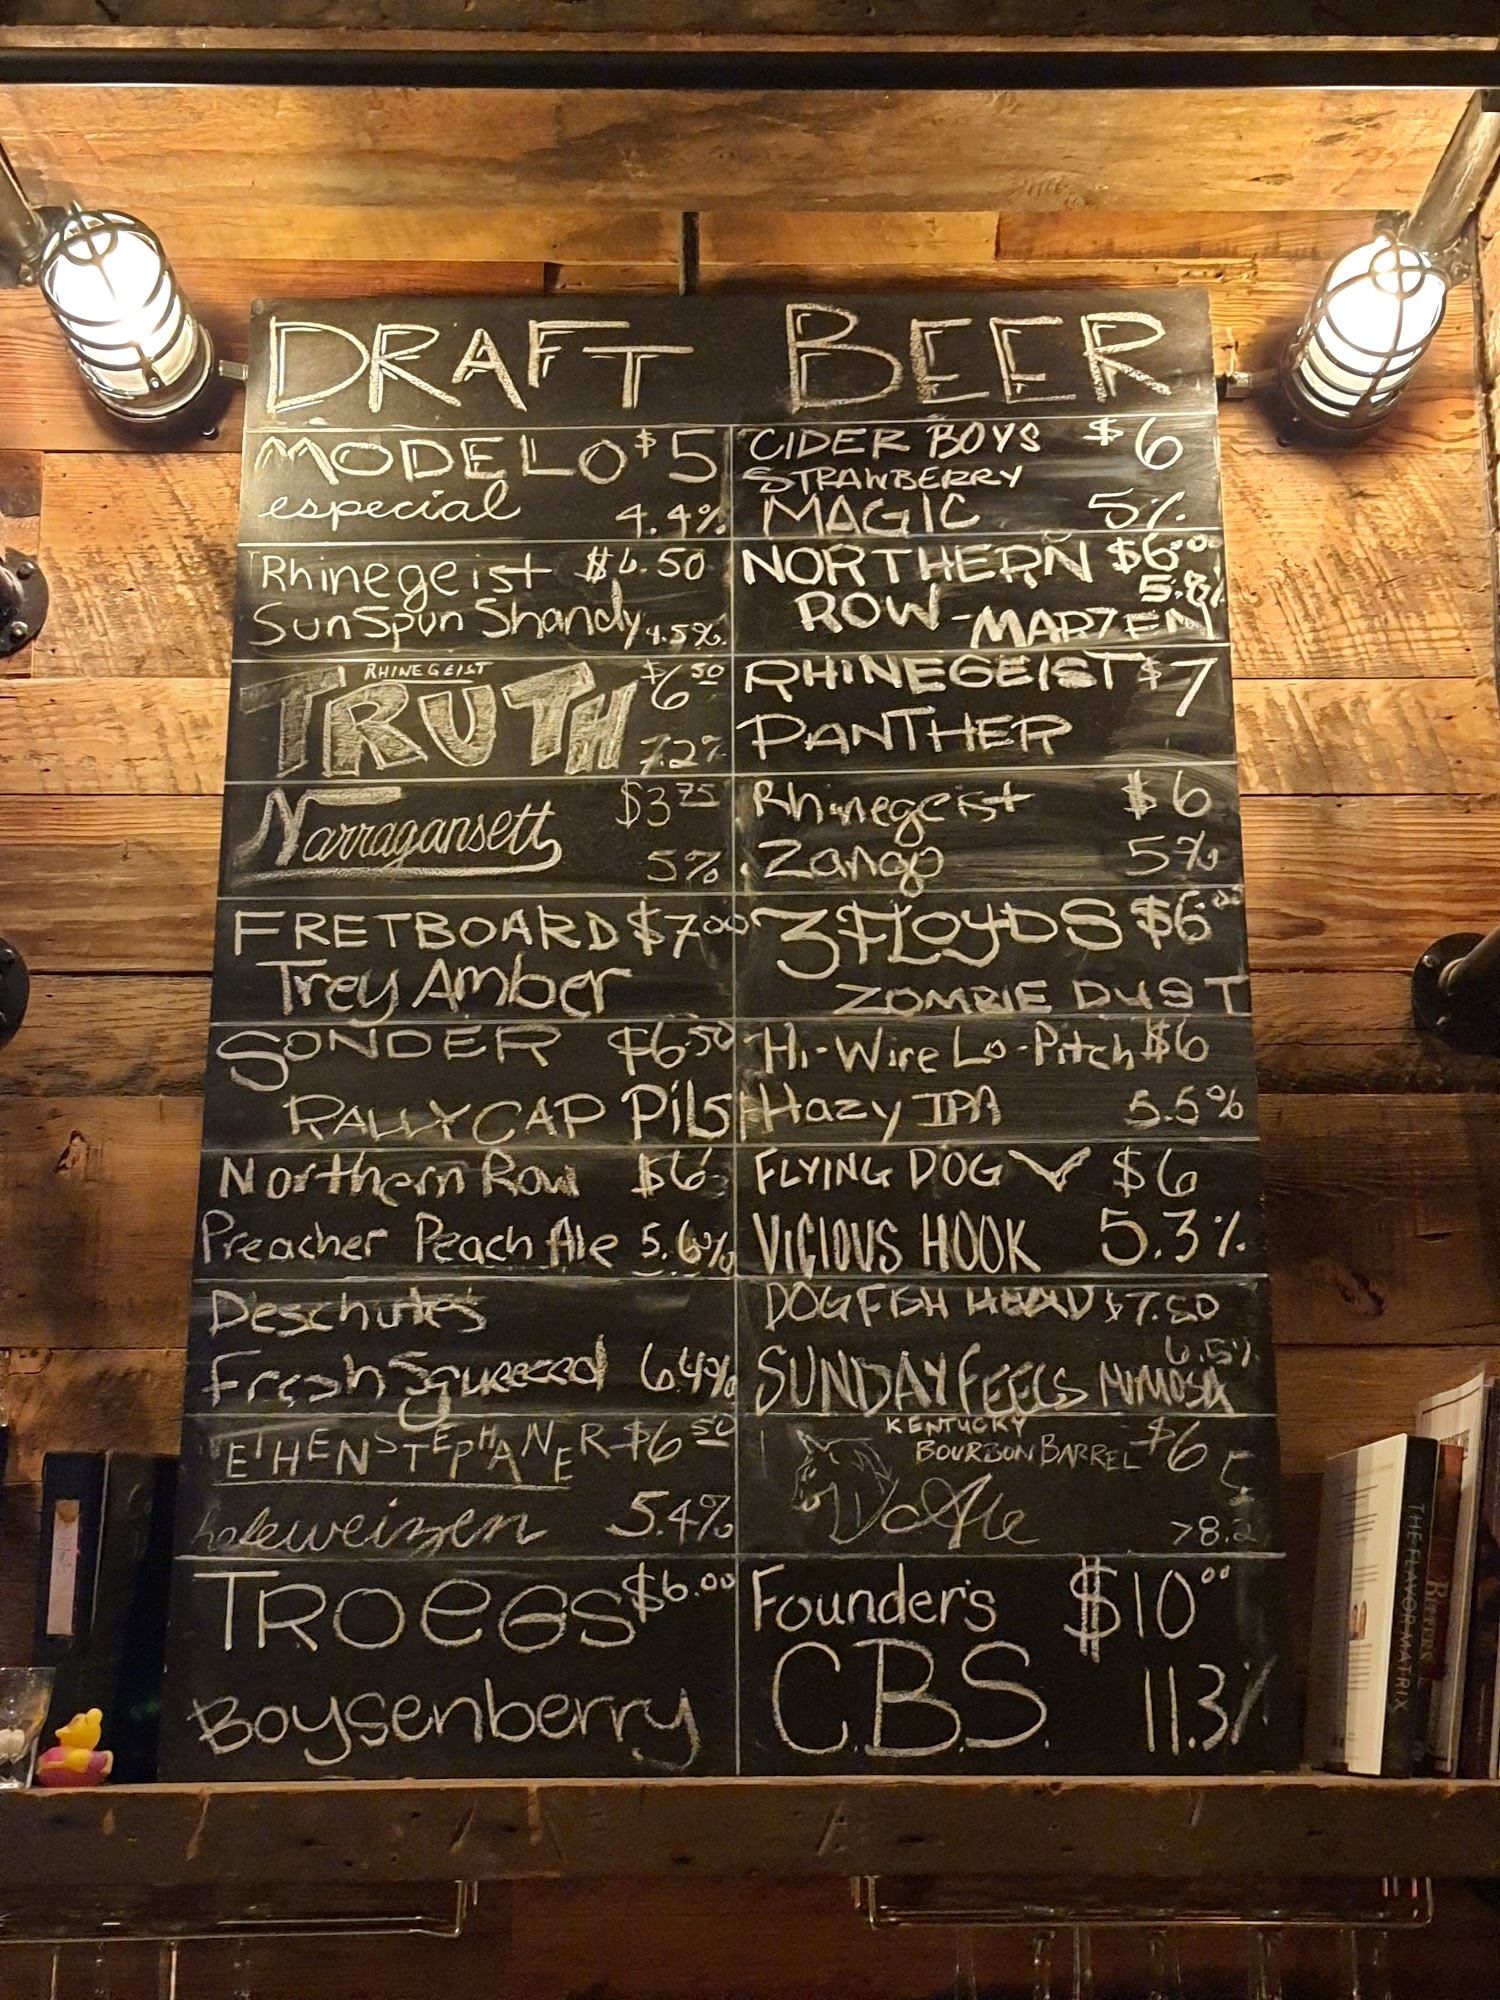 DRAFT BEER
MODELO $5
especial 4.4%
Rhinegeist $6.50
SunSpun Shandy 4.5%
RHINEGEIST
TRUTH $6 50
7.2%
Narragansett $3 75
5%
FRETBOARD $7.00
Trey Amber
SONDER $6.50
RALLYCAP Pils
Northern Row $6
Preacher Peach Ale 5.6%
Deschutes
Fresh Squeezed 6.4%
WEIHENSTEPHANER $6 50
hefeweizen 5.4%
TROEGS $6.00
Boysenberry
CIDER BOYS $6
STRAWBERRY
MAGIC 5%
NORTHERN $6.00
5.8%
ROW - MARZEN
RHINEGEIST $7
PANTHER
Rhinegeist $6
Zango 5%
3 FLOYDS $6.00
ZOMBIE DUST
Hi-Wire Lo-Pitch $6
Hazy IPA 5.5%
FLYING DOG $6
VICIOUS HOOK 5.3%
DOGFISH HEAD $7.50
6.5%
SUNDAY FEELS MIMOSA
KENTUCKY
BOURBON BARREL $6
Ale
>8.2
Founder's $10 00
C.B.S. 11.3%
THE FLAVOR MATRIX